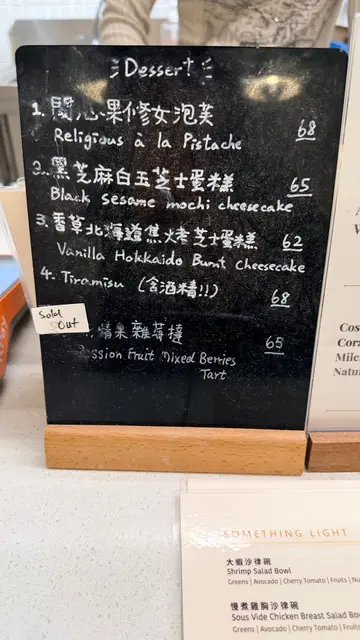 Dessert
1. 開心果修女泡芙 68
Religious à la Pistache
2. 黑芝麻白玉芝士蛋糕 65
Black sesame mochi cheesecake
3. 香草北海道焦烤芝士蛋糕 62
Vanilla Hokkaido Burnt cheesecake
4. Tiramisu (含酒精!!) 68
Sold Out
情果雜莓撻 65
Fruit Mixed Berries
Tart
Cos
Cora
Mile
Natu
SOMETHING LIGHT
大蝦沙律碗
Shrimp Salad Bowl
Greens | Avocado | Cherry Tomato | Fruits | Nu
慢煮雞胸沙律碗
Sous Vide Chicken Breast Salad Bo
Greens | Avocado | Cherry Tomato | Fruits